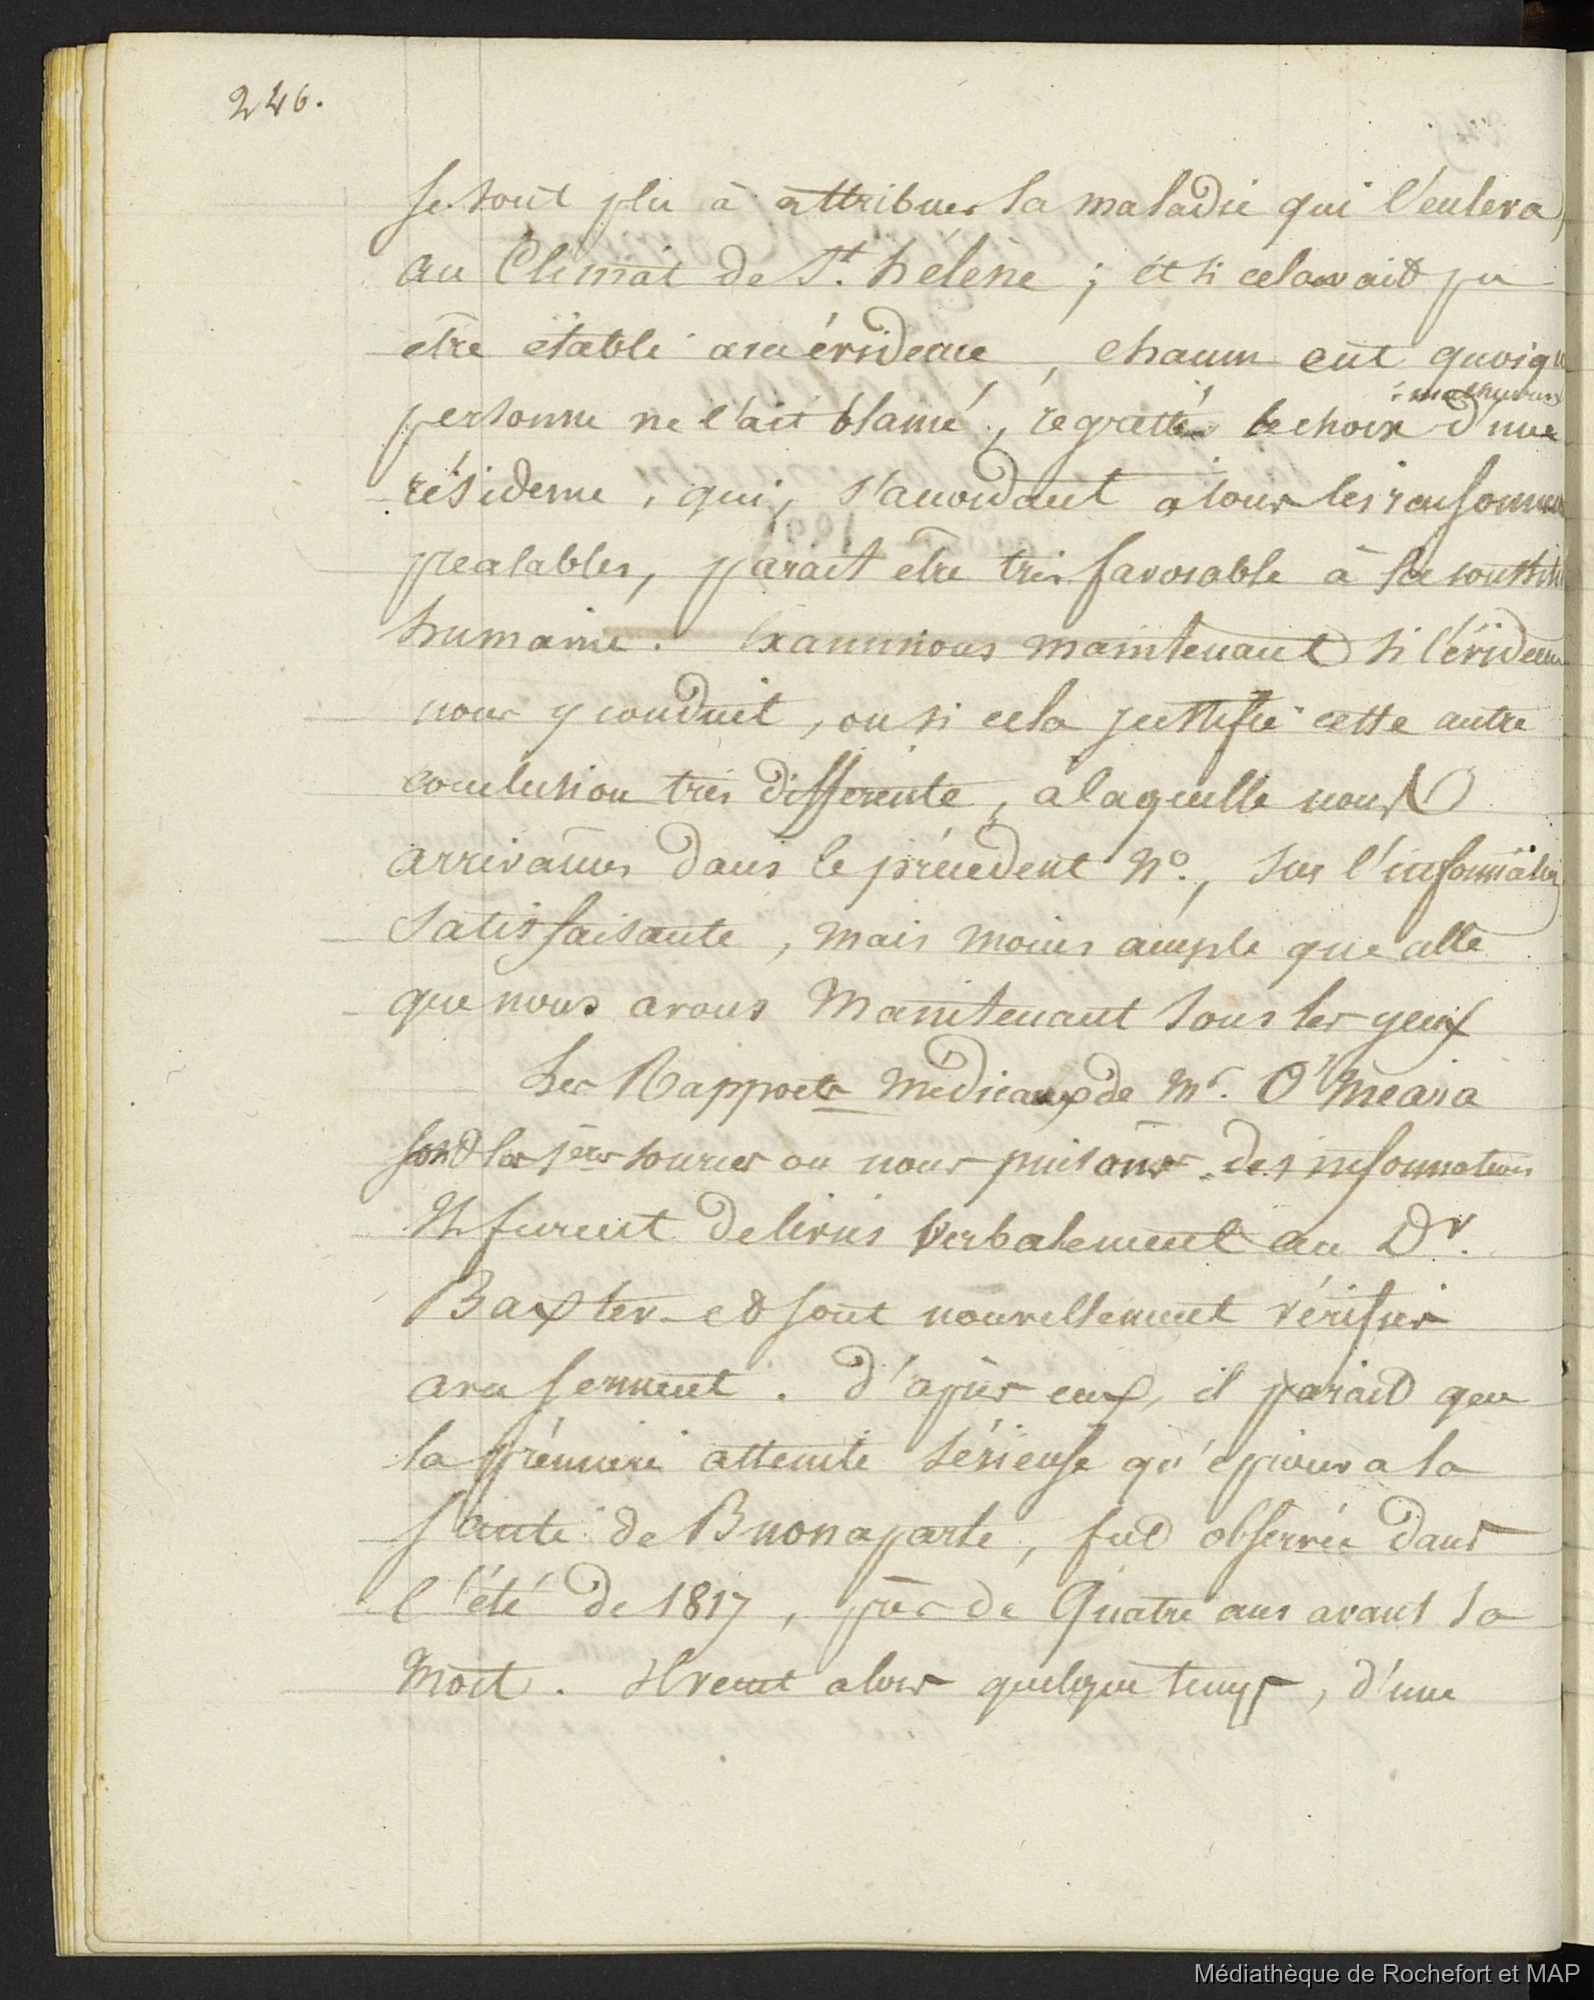 246.
se sont plu à attribuer la maladie qui l'enleva,
au Climat de St. hélène ; et si cela avait pu
etre établi avec évidence, chacun eût quoique
malheureux
personne ne l'ait blamé, regretté le choix d'une
résidence, qui, s'accordant à tous les raisonnem
prealables, parait etre très favorable à la constitu
humaine. Examinons maintenant si l'évidence
nous y conduit, ou si cela justifie cette autre
conclusion très differente, à laquelle nous
arrivames dans le précédent No., sur l'information
satisfaisante, mais moins ample que celle
que nous avons Maintenant sous les yeux
Les Rapports Médicaux de Mr. O'Meara
sont les 1ères sources ou nous puisons des informations
Ils furent delivrés verbalement au Dr.
Baxter et sont nouvellement vérifiés
avec serment. d'après eux, il parait que
la prémière atteinte sérieuse qu'éprouva la
santé de Buonaparte, fut observée dans
l'été de 1817, près de Quatre ans avant sa
Mort. alors quelque temps, d'une
Médiathèque de Rochefort et MAP